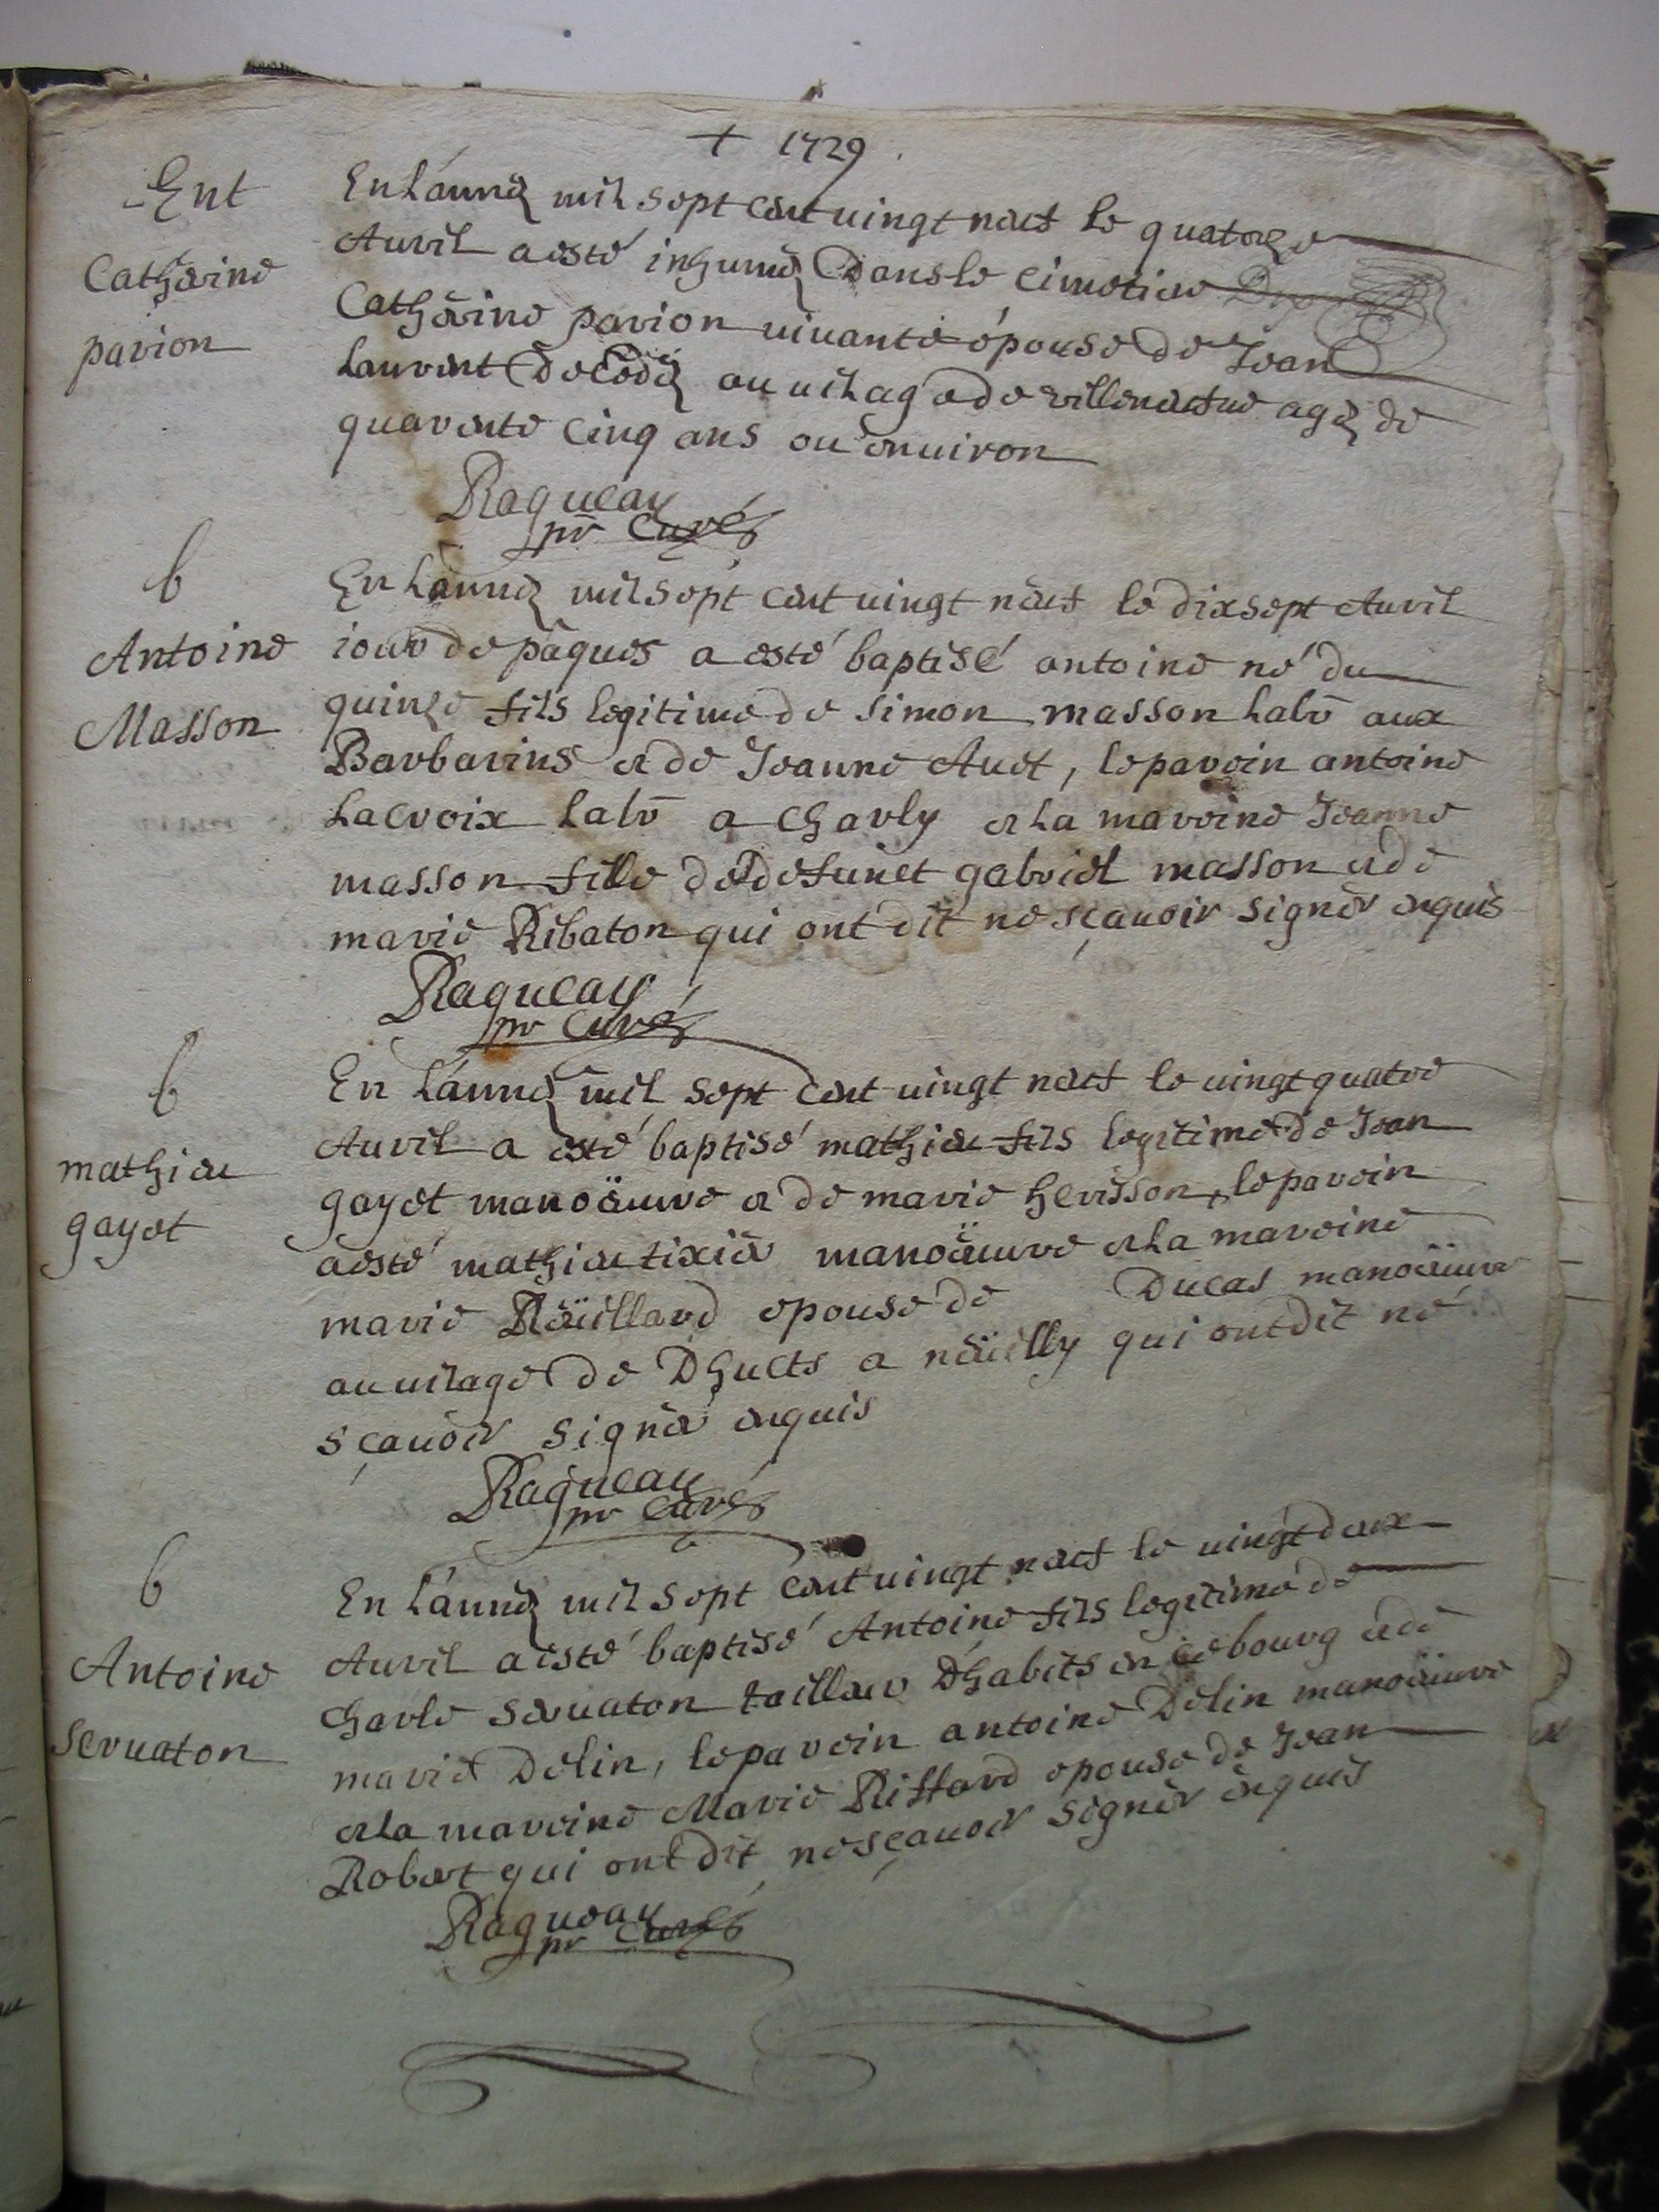 + 1729
Ent
Catherine
parion
En L'année mil sept cent uingt neuf le quatorze
Auril a esté inhumée Dans le cimetiere
Catherine parion uiuante épouse de Jean
Laurent Decedée au uilage de villeneufue agée de
quarente cinq ans ou enuiron
Ragueau
pr Curé
b
Antoine
Masson
En L'année mil sept cent uingt neuf le dix sept Auril
iour de pâques a esté baptisé antoine né du
quinze fils legitime de simon masson labr aux
Barbarins et de Jeanne Auet, le parein antoine
Lacroix labr a Charly et La mareine Jeanne
masson fille de defunct gabriel masson et de
marie Ribaton qui ont dit ne sçauoir signer enquis
Ragueau
pr Curé
b
mathieu
gayet
En L'année mil sept cent uingt neuf le uingt quatre
Auril a esté baptisé mathieu fils legitime de Jean
gayet manoeuure et de marie herisson, le parein
a esté mathieu tixier manoeuure et La mareine
marie Reüillard epouse de Ducas manoeüure
au uilage de Dhuets a neüilly qui ont dit ne
sçauoir signer enquis
Ragueau
pr Curé
b
Antoine
Seruaton
En L'année mil sept cent uingt neuf le uingt deux
Auril a esté baptisé Antoine fils legitime de
Charle seruaton tailleur D'habits en ce bourg et de
marie Delin, le parein antoine Delin manoeuure
et La mareine Marie Riffard epouse de Jean
Robert qui ont dit ne sçauoir signer enquis
Ragueau
pr Curé